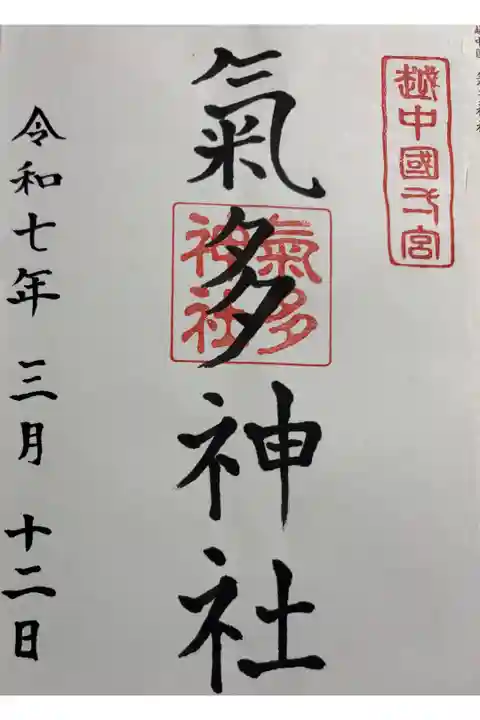 越中國一宮
氣多神社
氣多
神社
令和七年 三月 十二日